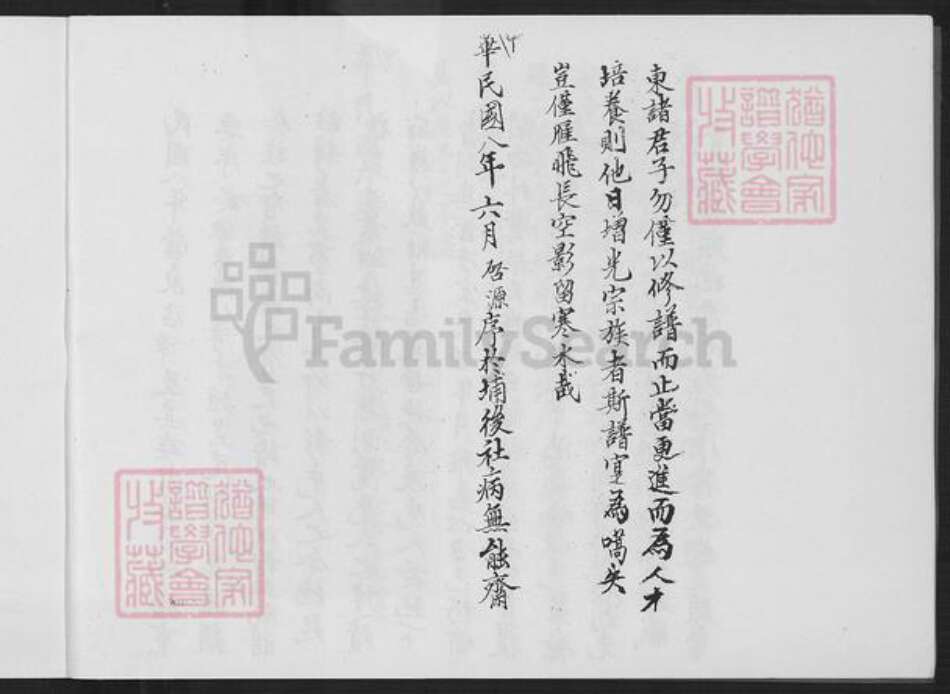 東諸君子勿僅以修譜而止當更進而為人才
培養則他日增光宗族者斯譜寔為嚆矢
豈僅雁飛長空影留寒水哉
中華民國八年六月啓源序於埔後社病無能齋
猶他家
譜學會
收藏
猶他家
譜學會
收藏
FamilySearch